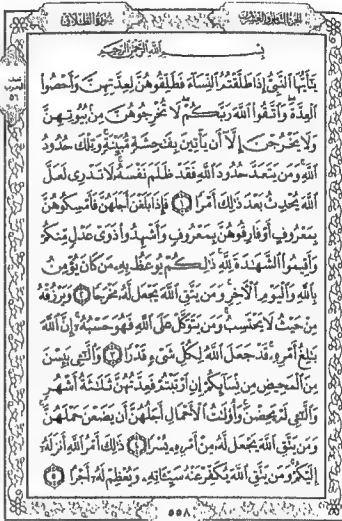 الجزء الثامن والعشرون سورة الطلاق
بسم الله الرحمن الرحيم
يأيها النبي إذا طلقتم النساء فطلقوهن لعدتهن وأحصوا
العدة واتقوا الله ربكم لا تخرجوهن من بيوتهن
ولا يخرجن إلا أن يأتين بفحشة مبينة وتلك حدود
الله ومن يتعد حدود الله فقد ظلم نفسه لا تدرى لعل
الله يحدث بعد ذلك أمرا ١ فإذا بلغن أجلهن فأمسكوهن
بمعروف أو فارقوهن بمعروف وأشهدوا ذوى عدل منكم
وأقيموا الشهدة لله ذلكم يوعظ به من كان يؤمن
بالله واليوم الأخر ومن يتق الله يجعل له مخرجا ٢ ويرزقه
من حيث لا يحتسب ومن يتوكل على الله فهو حسبه إن الله
بلغ أمره قد جعل الله لكل شىء قدرا ٣ والئى يئسن
من المحيض من نسائكم إن ارتبتم فعدتهن ثلثة أشهر
والئى لم يحضن وأولت الأحمال أجلهن أن يضعن حملهن
ومن يتق الله يجعل له من أمره يسرا ٤ ذلك أمر الله أنزله
إليكم ومن يتق الله يكفر عنه سيئاته ويعظم له أجرا ٥
٥٥٨